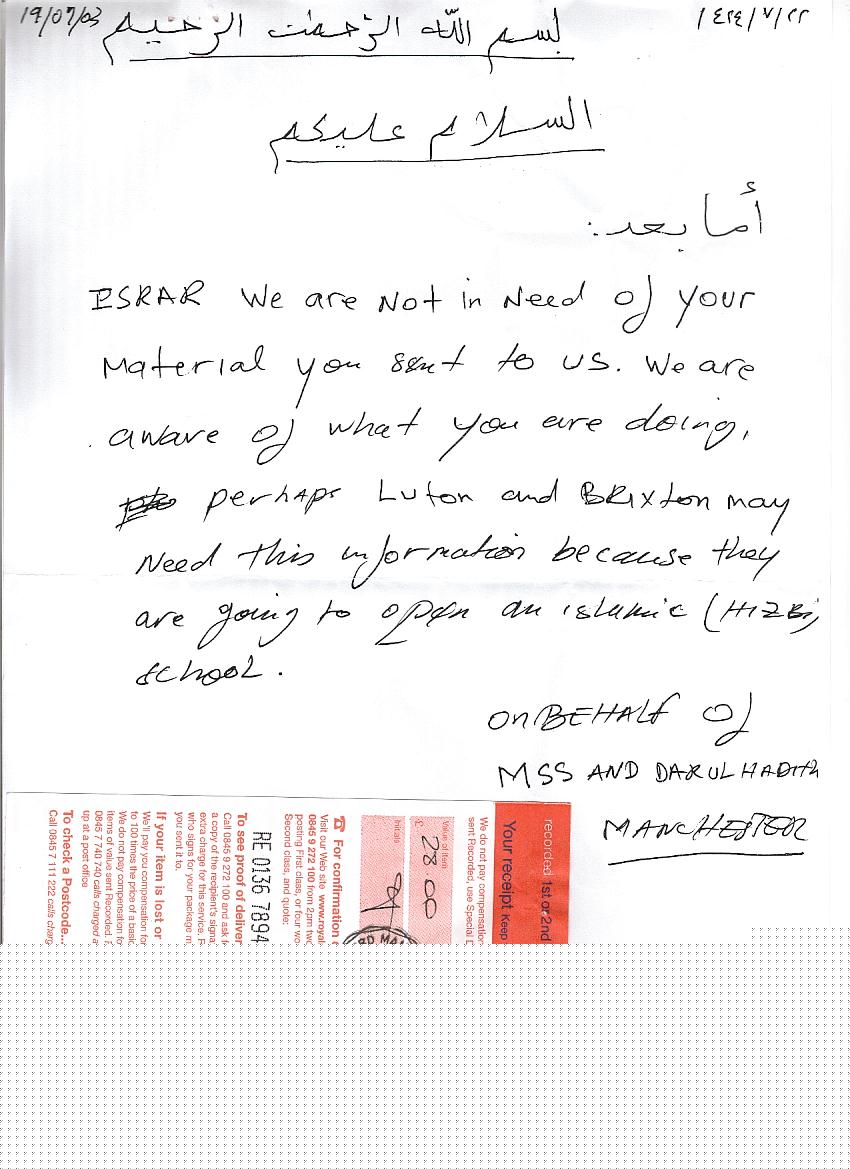 19/07/03
١٤٢٤/٧/٢٢
بسم الله الرحمن الرحيم
السلام عليكم
أما بعد:
ISRAR We are Not in Need of your
Material you sent to us. We are
aware of what you are doing,
perhaps Luton and BRixton may
Need this information because they
are going to open an islamic (HIZBi)
school.
on BEHALF of
MSS AND DARUL HADITH
MANCHESTER
recorded 1st or 2nd
Your receipt Keep
We do not pay compensation
sent Recorded, use Special D
Value of item
£ 28 00
Initials
For confirmation
Visit our Web site www.royal
0845 9 272 100 from 2pm
posting First class, or four wo
Second class, and quote:
RE 0136 7894
To see proof of deliver
Call 0845 9 272 100 and ask f
a copy of the recipient's signa
extra charge for this service.
who signs for your package m
you sent it to.
If your item is lost or
We'll pay you compensation for
to 100 times the price of a basic
We do not pay compensation fo
items of value sent Recorded.
0845 7 740 740 calls charged a
up at a post office
To check a Postcode...
Call 0845 7 111 222 calls charg